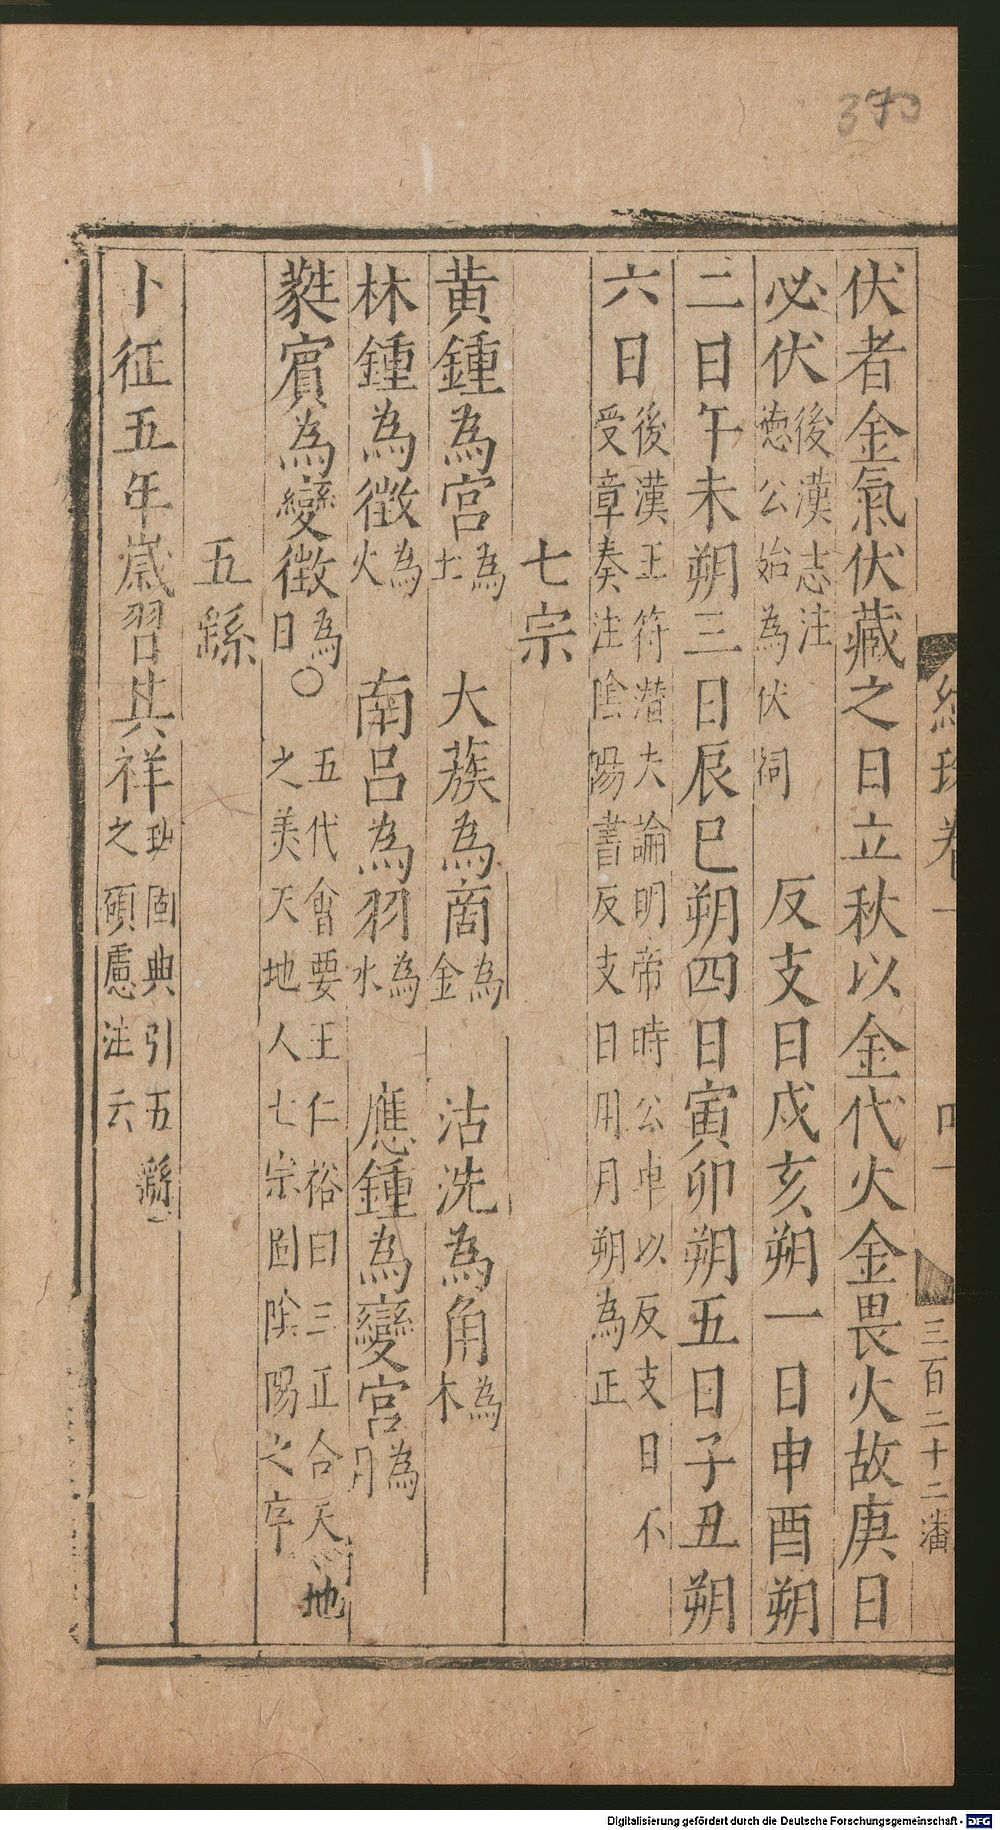 伏者金氣伏藏之日立秋以金代火金畏火故庚日
必伏後漢志注德公始為伏祠　反支日戍亥朔一日申酉朔
二日午未朔三日辰巳朔四日寅卯朔五日子丑朔
六日後漢王符潛夫論明帝時公車以反支日不受章奏注陰陽書反支日用月朔為正
七宗
黃鍾為宮為土　大蔟為商為金　沽洗為角為木
林鍾為徵為火　南呂為羽為水　應鍾為變宮為月
蕤賓為變徵為日〇五代會要王仁裕曰三正合天地之美天地人七宗固陰陽之序
五繇
卜征五年歲習其祥班固典引五繇之碩慮注云
卷一
三百二十二潘
373
Digitalisierung gefördert durch die Deutsche Forschungsgemeinschaft - DFG